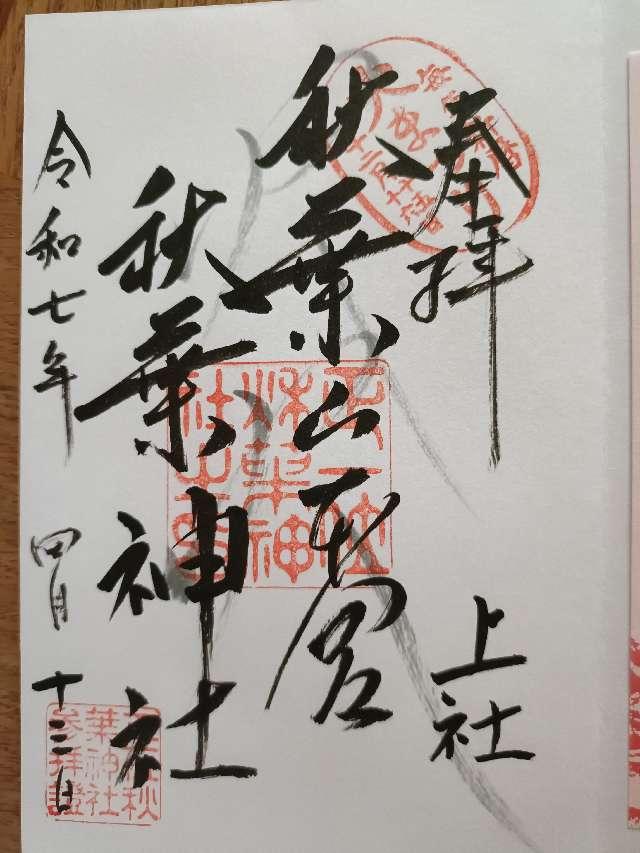 奉拝
上社
秋葉山本宮
秋葉神社
令和七年
四月
十三日
正一位
秋葉神
社之璽
秋
葉神社
参拝證